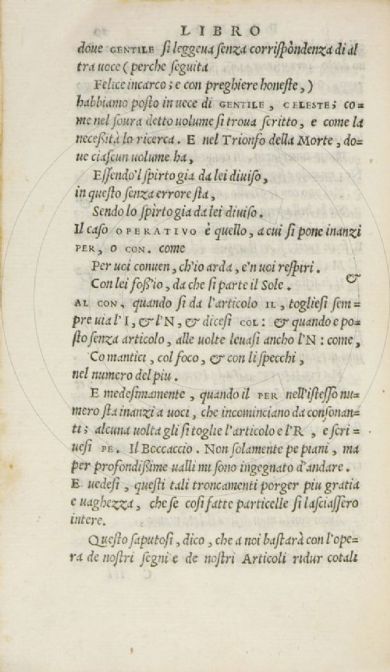 LIBRO
doue GENTILE si leggeua senza corrispòndenza di al
tra uoce (perche seguita
Felice incarco; e con preghiere honeste,)
habbiamo posto in uece di GENTILE, CELESTE; co-
me nel soura detto volume si troua scritto, e come la
necessità lo ricerca. E nel Trionfo della Morte, do-
ue ciascun uolume ha,
Essendo'l spirto gia da lei diuiso,
in questo senza errore sta,
Sendo lo spirto gia da lei diuiso.
Il caso OPERATIVO è quello, a cui si pone inanzi
PER, O CON. come
Per uoi conuen, ch'io arda, e'n uoi respiri. &
Con lei foss'io, da che si parte il Sole.
AL CON. quando si da l'articolo IL, togliesi sem-
pre uia l'I, & l'N, & dicesi COL: & quando e po-
sto senza articolo, alle uolte leuasi ancho l'N: come,
Co mantici, col foco, & con li specchi,
nel numero del piu.
E medesimamente, quando il PER nell'istesso nu-
mero sta inanzi a uoci, che incominciano da consonan-
ti; alcuna uolta gli si toglie l'articolo e l'R, e scri-
uesi PE. Il Boccaccio. Non solamente pe piani, ma
per profondissime ualli mi sono ingegnato d'andare.
E uedesi, questi tali troncamenti porger piu gratia
e uaghezza, che se cosi fatte particelle si lasciassero
intere.
Questo saputosi, dico, che a noi bastarà con l'ope-
ra de nostri segni e de nostri Articoli ridur cotali